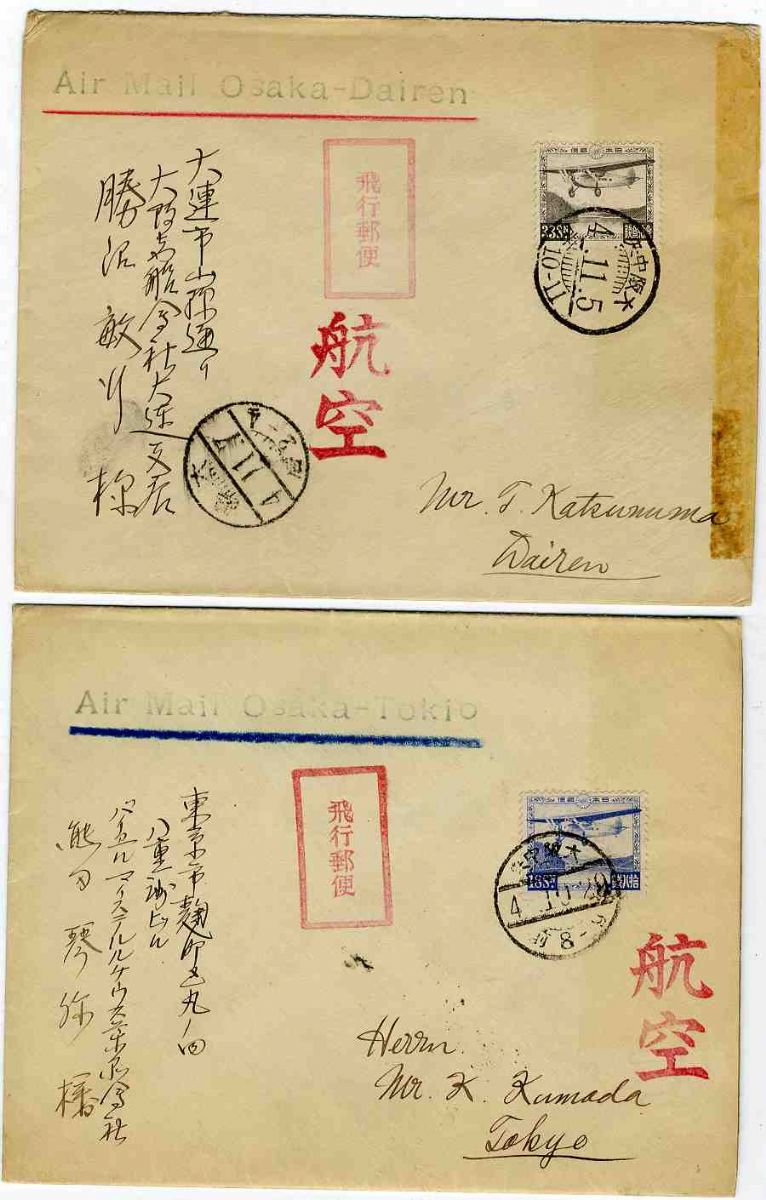 Air Mail Osaka-Dairen
大連市山縣通り
大阪商船會社大連支店
勝沼敏行様
飛行郵便
航空
4.11.5
Mr. T. Katsunuma
Dairen
Air Mail Osaka-Tokio
東京市麹町区丸ノ内
八重洲ビル
熊田琴弥様
飛行郵便
航空
Herrn
Mr. K. Kumada
Tokyo